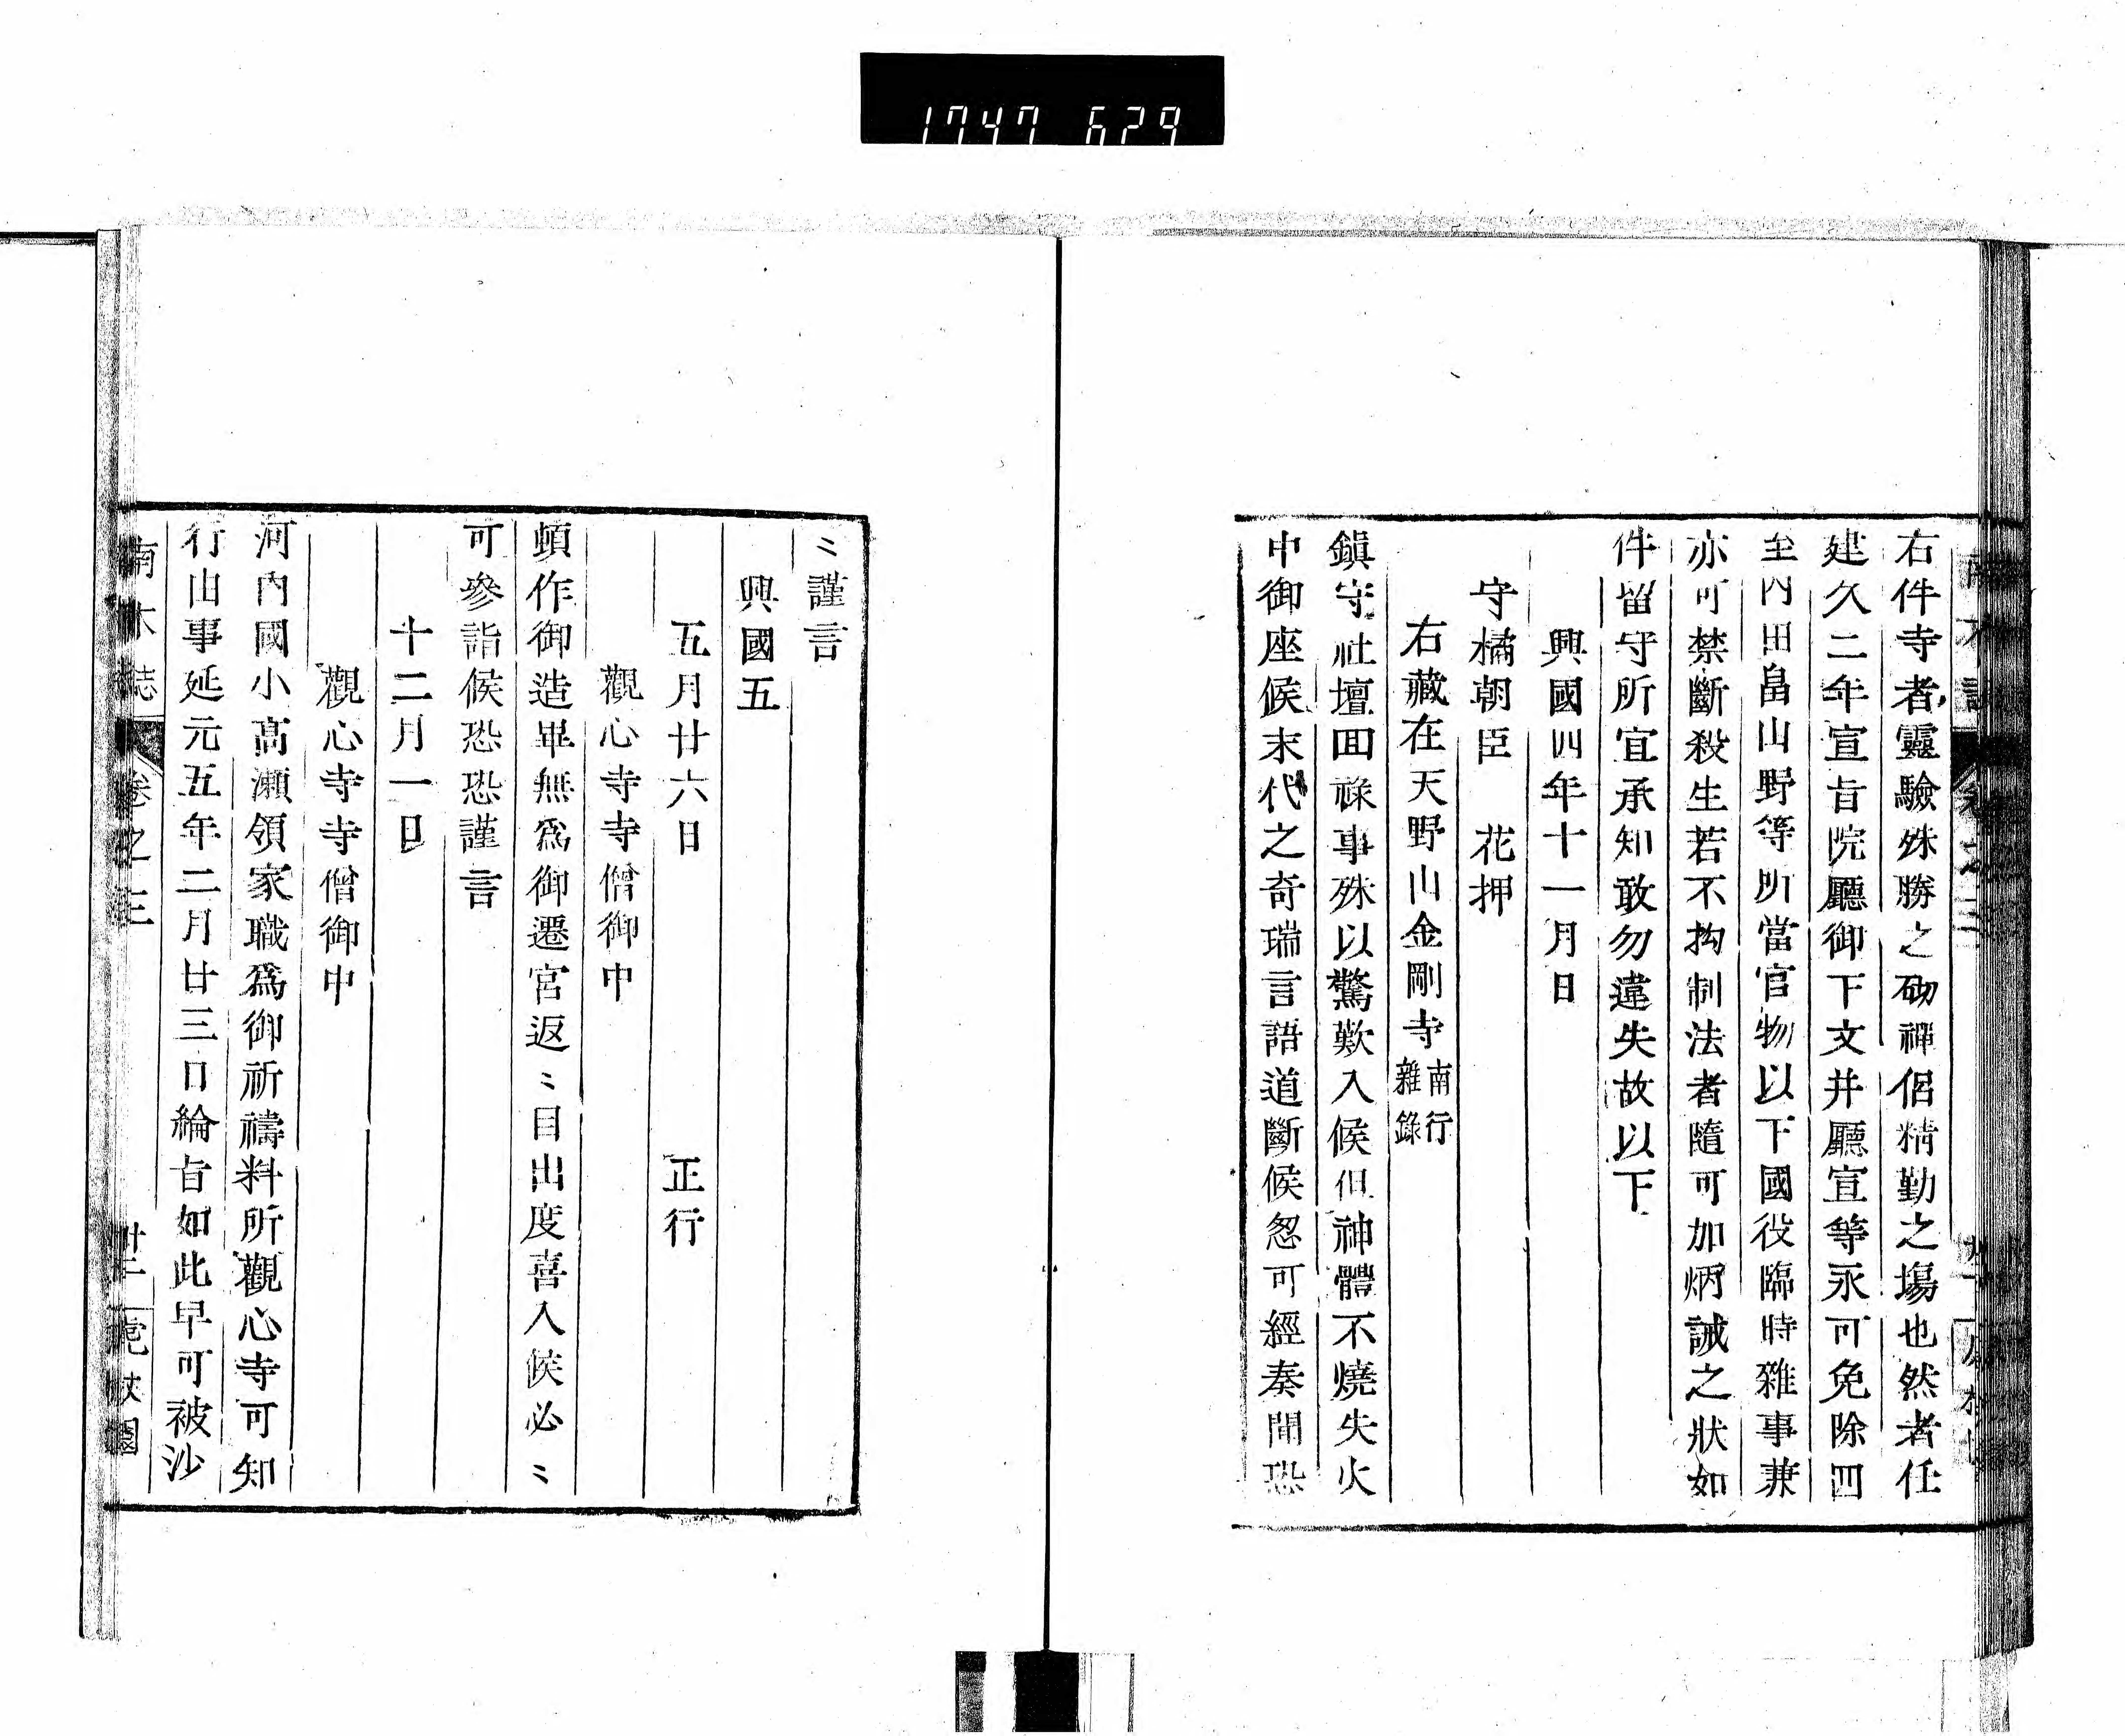 1747 629
右件寺者靈驗殊勝之砌禪侶精勤之塲也然者任
建久二年宣旨院廳御下文并廳宣等永可免除四
至内田畠山野等所當官物以下國役臨時雜事兼
亦可禁斷殺生若不拘制法者隨可加炳誡之狀如
件留守所宜承知敢勿違失故以下
興國四年十一月日
守橘朝臣　花押
右藏在天野山金剛寺南行雜錄
鎭守社壇囬祿事殊以驚歎入候但神體不燒失火
中御座候末代之奇瑞言語道斷候怱可經奏聞恐
〻謹言
興國五
五月廿六日　正行
觀心寺寺僧御中
頓作御造畢無爲御遷宮返〻目出度喜入候必〻
可參詣候恐恐謹言
十二月一日
觀心寺寺僧御中
河内國小髙瀬領家職爲御祈禱料所觀心寺可知
行由事延元五年二月廿三日綸旨如此早可被沙
南木誌　卷之三